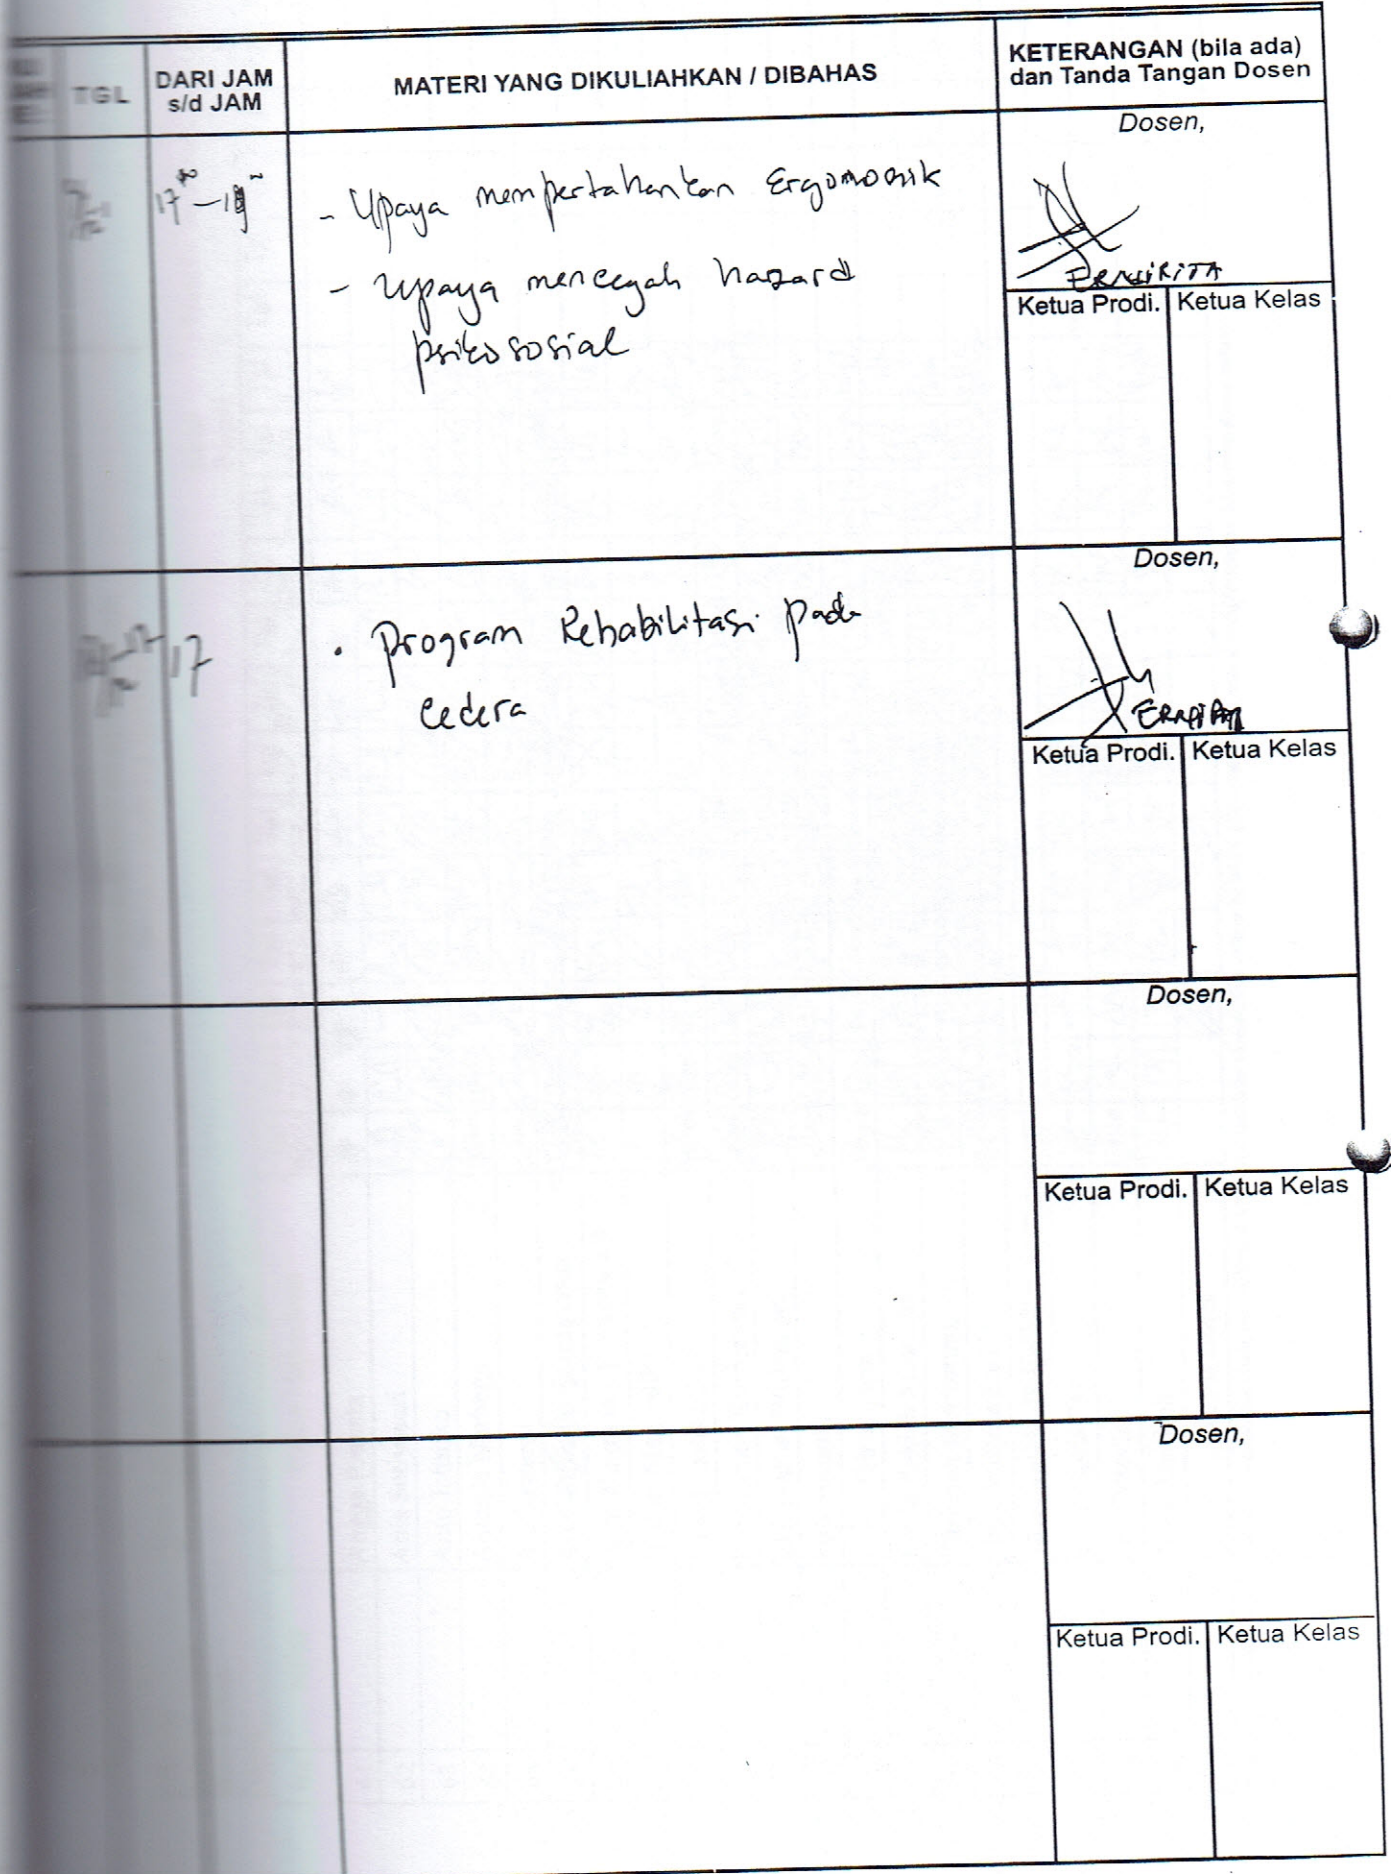 TGL
DARI JAM
s/d JAM
MATERI YANG DIKULIAHKAN / DIBAHAS
KETERANGAN (bila ada)
dan Tanda Tangan Dosen
- Upaya mempertahankan Ergonomik
- Upaya mencegah hazard
psikososial
Dosen,
ERNSIRITA
Ketua Prodi. Ketua Kelas
17
• Program Rehabilitasi pada
cedera
Dosen,
Ketua Prodi. Ketua Kelas
Dosen,
Ketua Prodi. Ketua Kelas
Dosen,
Ketua Prodi. Ketua Kelas